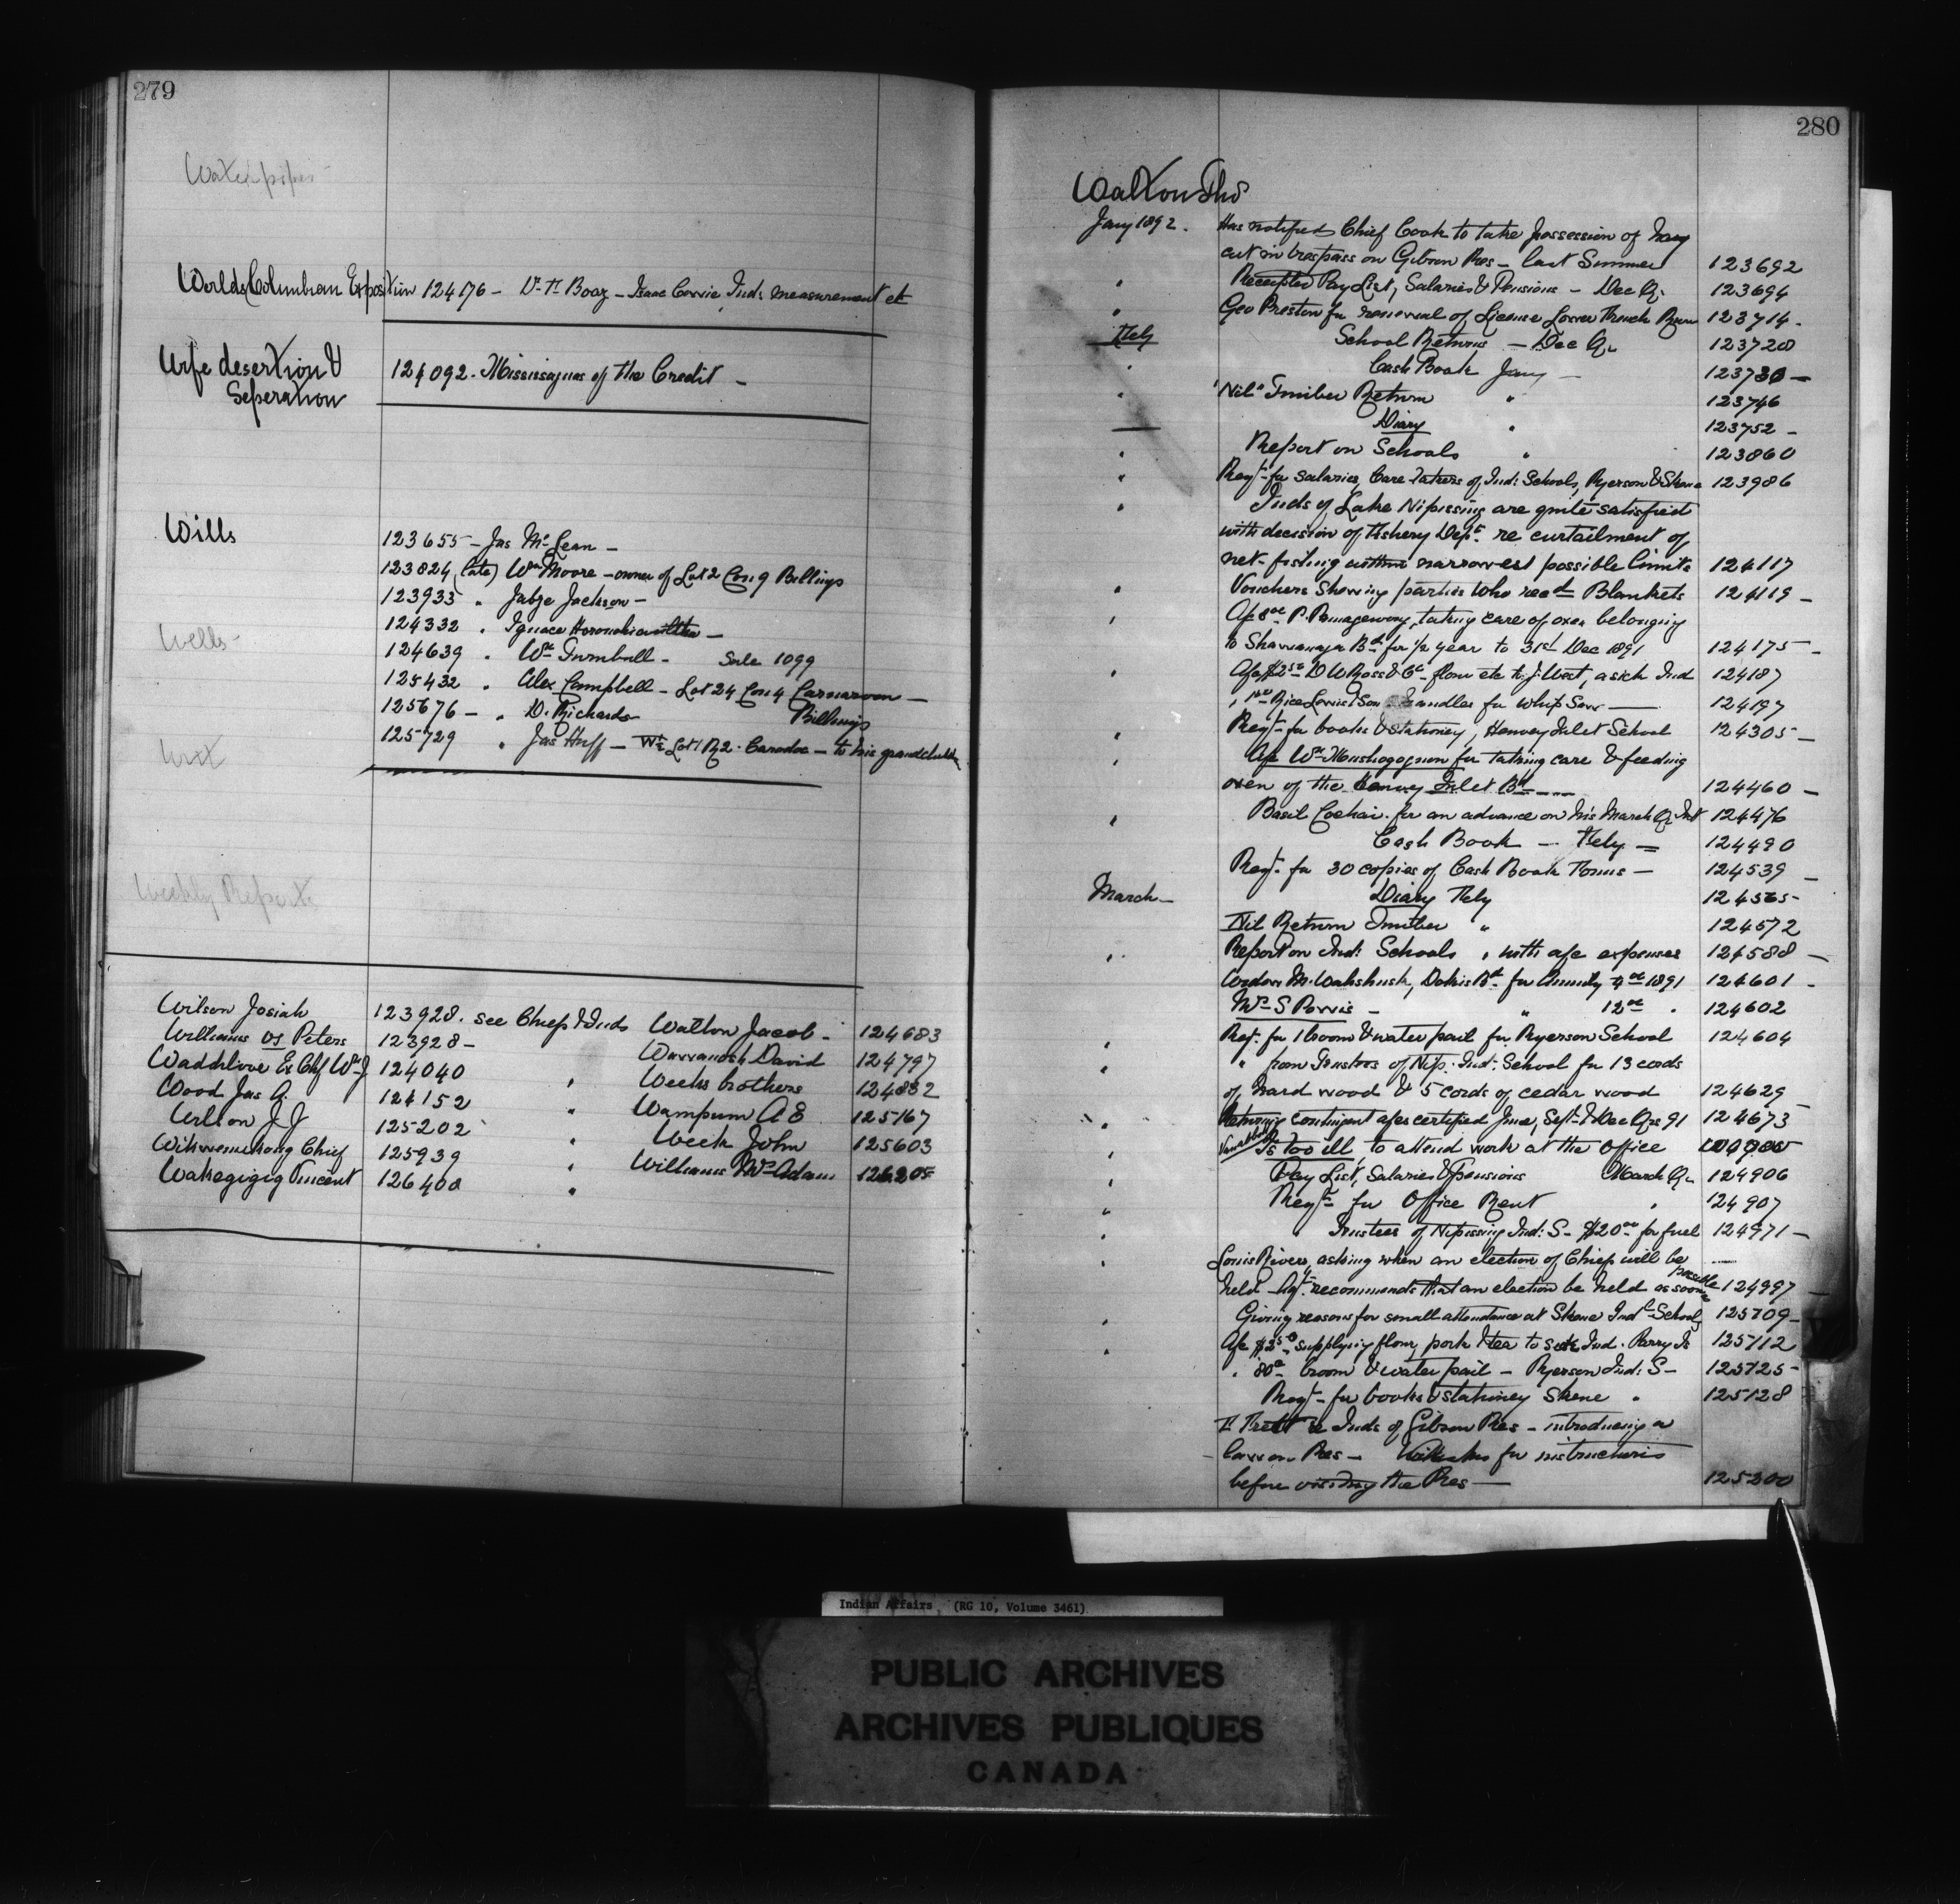 279
Waterpipes
Worlds Columbian Exposition 124176 - Dr. F. Boaz - Isaac Corrie, Inds measurement etc
Wife desertion & 124092 - Mississaguas of the Credit -
Seperation
Wills
123655 - Jas McLean -
123824 (late) Wm Moore - owner of Lot 2 Con 9 Billings
123933 " Jabze Jackson -
124332 " Ignace
Wells -
124639 " Wm Turnbull - Sale 1099
125432 " Alex Campbell - Lot 24 Con 4 Carnarvon -
125676 - " D. Richards Billings
125729 " Jas Huff - W½ Lot 1 R2. Caradoc - to his grandchildren
Writ
Weekly Reports
Wilson Josiah 123928. see Chief & Inds Walton Jacob - 124683
Williams vs Peters 123928 - Wawanosh David 124797
Waddilove Ex Chf Wm J 124040 " Weeks brothers 124882
Wood Jas A. 124152 " Wampum A E 125167
Wilson J J 125202 " Week John 125603
Wikwemikong Chief 125939 " Williams Mrs Adam 126205
Wakegigig Vincent 126408 "
280
Walton Thos
Jany 1892. Has notified Chief Cook to take possession of hay
cut in trespass on Gibson Res - last Summer 123692
" Receipted Pay List, Salaries & Pensions - Dec Qr. 123694
" Geo Preston for renewal of License Lower French River 123714.
Feby School Returns - Dec Qr 123720
" Cash Book Jany - 123730 -
" "Nil" Timber Return " 123746
Diary " 123752 -
" Report on Schools " 123860
" Reqt. for salaries, Care takers of Ind: Schools, Ryerson & Skene 123986
" Inds of Lake Nipissing are quite satisfied
with decision of Fishery Dept. re curtailment of
net-fishing within narrowest possible limits 124117
" Vouchers Showing parties who recd Blankets 124119 -
" taking care of oxen belonging
to Shawanaga Bd for ½ year to 31st Dec 1891 124175 -
" D W Ross & Co - flour etc to J. West, a sick Ind 124187
Rice Lewis & Son handles for Whip Saw - 124197
" Reqt - for books & stationey, Henvey Inlet School 124305 -
" for taking care & feeding
oxen of the Henvey Inlet Bd - 124460 -
" Basil for an advance on his March Qr Int 124476
Cash Book - Feby - 124490
Reqt. for 30 copies of Cash Book Forms - 124539 -
March - Diary Feby 124565 -
Nil Return Timber " 124572
" Report on Ind: Schools " with a/c expenses 124588 -
Widow M. Wahshusk, Dokis Bd. for Annuity 1891 124601 -
Mrs S - " 12.00 . 124602
" Reqt. for 1 broom & water pail for Ryerson School 124604
" " from Trustees of Nip. Ind: School for 13 cords
of hard wood & 5 cords of cedar wood 124629 -
" Returning contingent a/cs certified June, Sept. & Dec Qrs 91 124673
" Is too ill, to attend work at the office
" Pay List, Salaries & Pensions March Qr. 124906
" Reqt for Office Rent " 124907
" " Trustees of Nipissing Ind: S - $20.00 for fuel 124971 -
" Louis Rivers, asking when an election of Chief will be
held - Agt. recommends that an election be held as soon as possible 124997 -
" Giving reasons for small attendance at Skene Indn School 125109 -
" A/c supplying flour, pork & tea to sick Ind. Parry Is 125112
" broom & water pail - Ryerson Ind: S - 125125 -
Reqt - for books & stationey Skene " 125128
re Inds of Gibson Res - introducing a
Res - for instructions
before visiting the Res - 125200
Indian Affairs (RG 10, Volume 3461)
PUBLIC ARCHIVES
ARCHIVES PUBLIQUES
CANADA